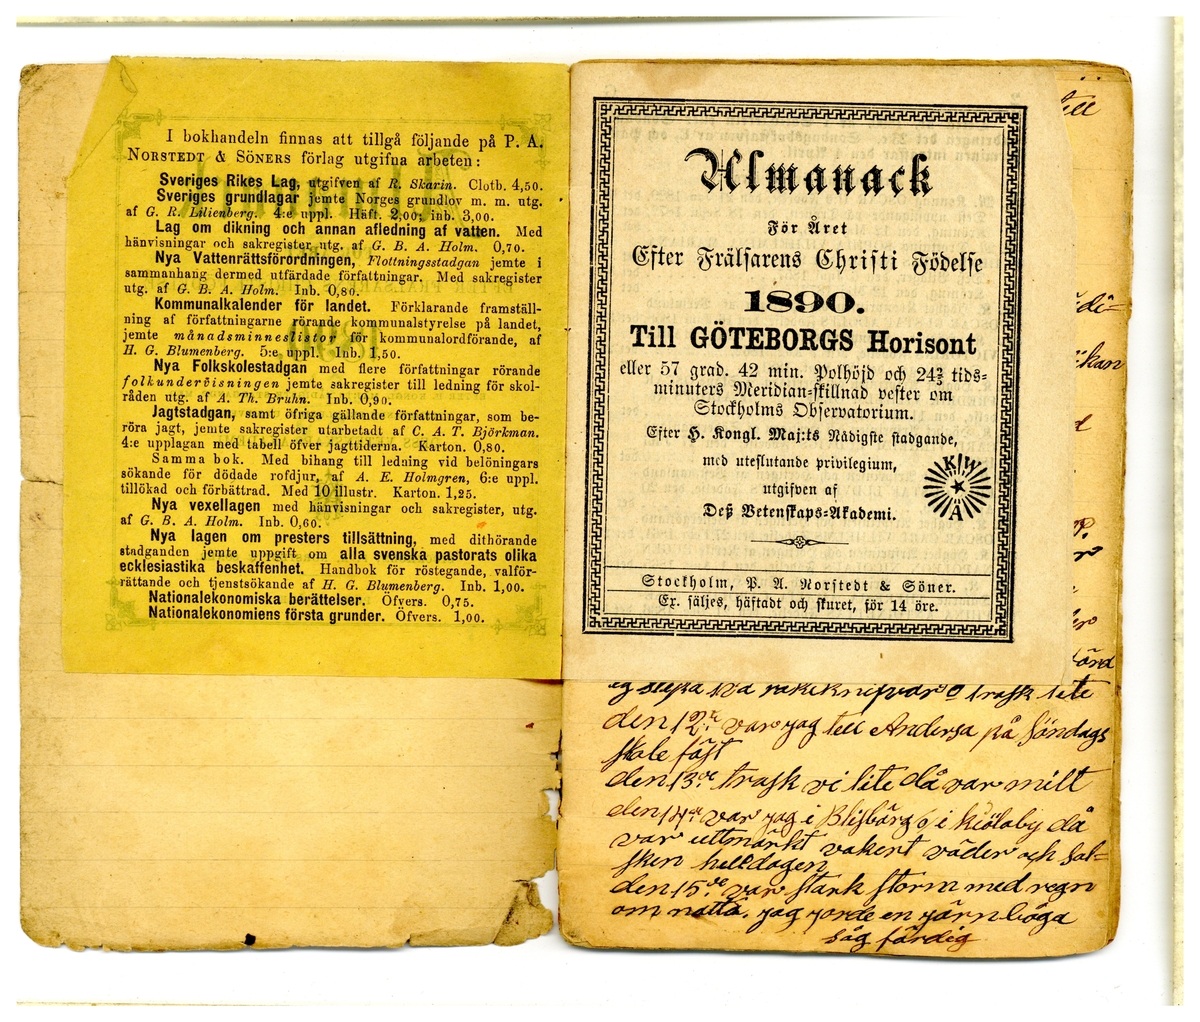 I bokhandeln finnas att tillgå följande på P. A.
NORSTEDT & SÖNERS förlag utgifna arbeten:
Sveriges Rikes Lag, utgifven af R. Skarin. Clotb. 4,50.
Sveriges grundlagar jemte Norges grundlov m. m. utg.
af G. R. Lilienberg. 4:e uppl. Häft. 2,00; inb. 3,00.
Lag om dikning och annan afledning af vatten. Med
hänvisningar och sakregister utg. af G. B. A. Holm. 0,70.
Nya Vattenrättsförordningen, Flottningsstadgan jemte i
sammanhang dermed utfärdade författningar. Med sakregister
utg. af G. B. A. Holm. Inb. 0,80.
Kommunalkalender för landet. Förklarande framställ-
ning af författningarne rörande kommunalstyrelse på landet,
jemte månadsminneslistor för kommunalordförande, af
H. G. Blumenberg. 5:e uppl. Inb. 1,50.
Nya Folkskolestadgan med flere författningar rörande
folkundervisningen jemte sakregister till ledning för skol-
råden utg. af A. Th. Bruhn. Inb. 0,90.
Jagtstadgan, samt öfriga gällande författningar, som be-
röra jagt, jemte sakregister utarbetadt af C. A. T. Björkman.
4:e upplagan med tabell öfver jagttiderna. Karton. 0,80.
Samma bok. Med bihang till ledning vid belöningars
sökande för dödade rofdjur, af A. E. Holmgren, 6:e uppl.
tillökad och förbättrad. Med 10 illustr. Karton. 1,25.
Nya vexellagen med hänvisningar och sakregister, utg.
af G. B. A. Holm. Inb. 0,60.
Nya lagen om presters tillsättning, med dithörande
stadganden jemte uppgift om alla svenska pastorats olika
ecklesiastika beskaffenhet. Handbok för röstegande, valför-
rättande och tjenstsökande af H. G. Blumenberg. Inb. 1,00.
Nationalekonomiska berättelser. Öfvers. 0,75.
Nationalekonomiens första grunder. Öfvers. 1,00.
Almanack
För Året
Efter Frälsarens Christi Födelse
1890.
Till GÖTEBORGS Horisont
eller 57 grad. 42 min. Polhöjd och 24⅔ tids-
minuters Meridian-skillnad vester om
Stockholms Observatorium.
Efter H. Kongl. Maj:ts Nådigste stadgande,
med uteslutande privilegium,
utgifven af
Deß Vetenskaps-Akademi.
K W A
Stockholm, P. A. Norstedt & Söner.
Ex. säljes, häftadt och skuret, för 14 öre.
till
den 12te var jag till Andersa på Söndags
skole fäst
den 13de trask vi lite då var milt
den 14de var jag i Blisbärg o i kiölaby då
var uttmärkt vakert väder och Sol=
sken helldagen
den 15de var stark storm med regn
om natta. jag jorde en järn bōga
såg färdig